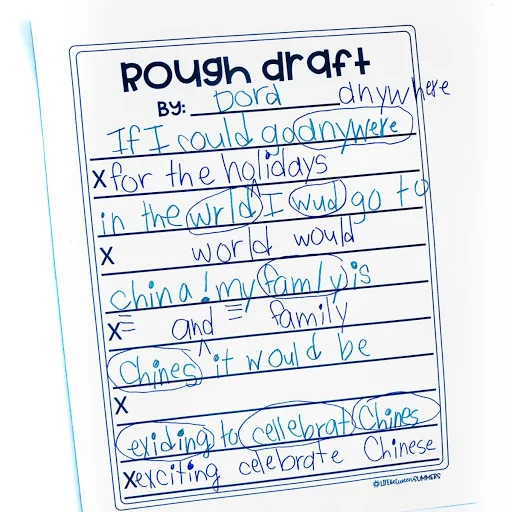 Rough draft
By: Dord anywhere
If I could go anywere
X for the holidays
in the wrld I wud go to
X world would
china! my famly is
X and family
Chines ^ it would be
X
exiding to cellebrat Chines
X exciting celebrate Chinese
©LIFE BETWEEN SUMMERS